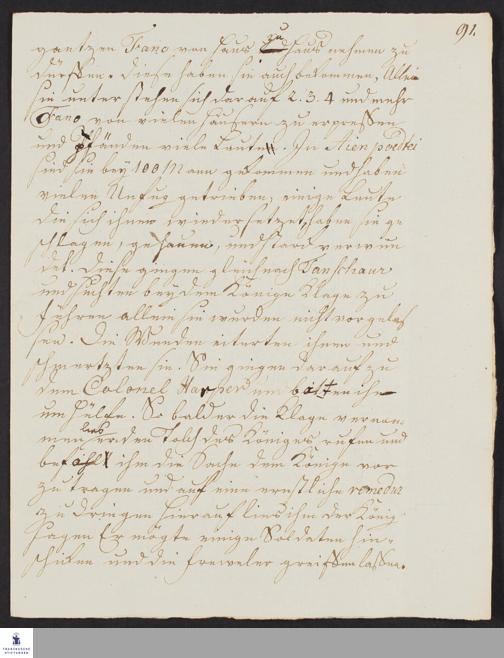 91.
gantzen Fano von Haus zu Haus nehmen zu
dürffen. diese haben sie auch bekommen, Allein
sie unterstehen sich darauf 2. 3. 4 und mehr
Fano von vielen Häusern zu erpressen
und pfänden viele Leute. In
sind sie bey 100 Mann gekommen und haben
vielen Unfug getrieben, einige Leute
die sich ihnen wiedersetzet, haben sie ge
schlagen, gehauen, und starck verwun
det. diese gingen gleich nach Tanschaur
und suchten bey dem Könige Klage zu
führen allein sie wurden nicht vorgelas
sen. Die Wunden eiterten ihnen und
schmertzten sie. Sie gingen darauf zu
dem Colonel Harper um baten ihn
um Hülfe. So bald er die Klage vernom
men lies er den Tolch des Königes rufen und
befahl ihm die Sache dem Könige vor
zu tragen und auf eine ernstliche remedur
zu dringen hierauf lies ihm der König
sagen Er mögte einige Soldaten hin-
schicken und die Freveler greiffen lassen.
FRANCKESCHE STIFTUNGEN